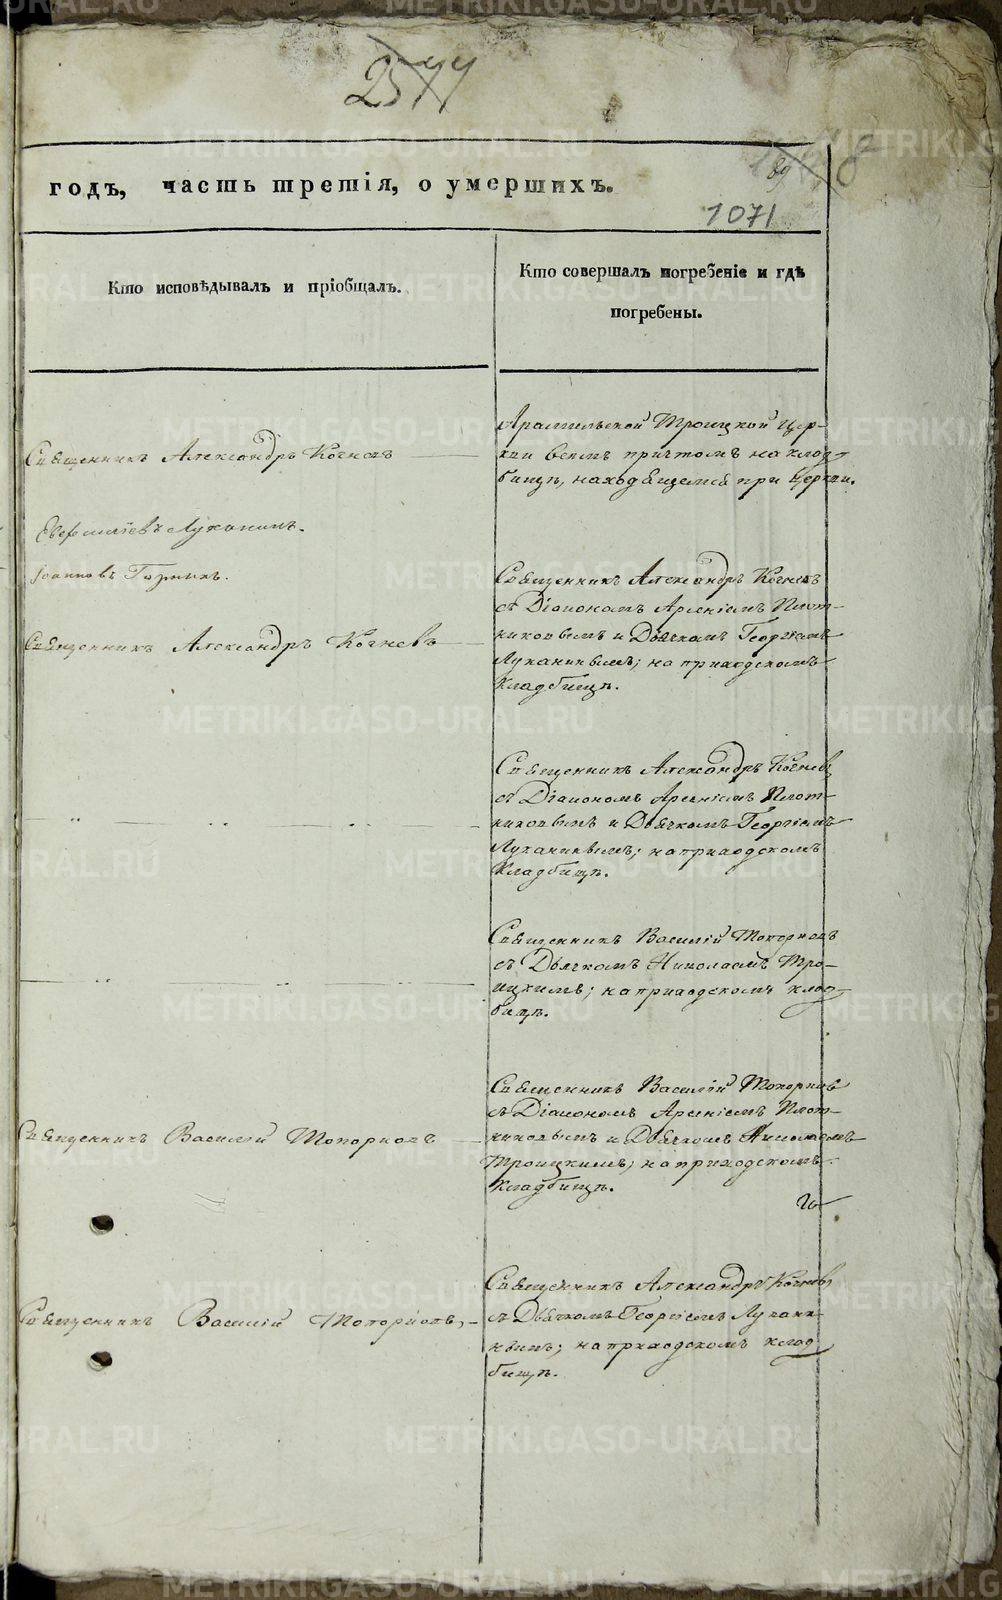 2577
89
1071
годъ, часть третія, о умершихъ.
Кто исповѣдывалъ и пріобщалъ.
Кто совершалъ погребеніе и гдѣ
погребены.
Арамильской Троицкой Цер-
кви всемъ причтомъ на клад-
бищѣ, находящемся при Церкви.
Священникъ Александръ Кочневъ
Лукинымъ.
Священникъ Александръ Кочневъ
съ Діакономъ Арсеніемъ Плот-
никовымъ и Дьячкомъ Георгіемъ
Луканинымъ; на приходскомъ
Кладбищѣ.
Священникъ Александръ Кочневъ
Священникъ Александръ Кочневъ
съ Діакономъ Арсеніемъ Плот-
никовымъ и Дьячкомъ Георгіемъ
Луканинымъ; на приходскомъ
Кладбищѣ.
Священникъ Василій Топорковъ
съ Дьячкомъ Николаемъ Тро-
ицкимъ; на приходскомъ клад-
бищѣ.
Священникъ Василій Топорковъ
Священникъ Василій Топорковъ
съ Діакономъ Арсеніемъ Плот-
никовымъ и Дьячкомъ Николаемъ
Троицкимъ; на приходскомъ
Кладбищѣ.
Священникъ Василій Топорковъ,
Священникъ Александръ Кочневъ
съ Дьячкомъ Георгіемъ Лукани-
нымъ; на приходскомъ клад-
бищѣ.
METRIKI.GASO-URAL.RU